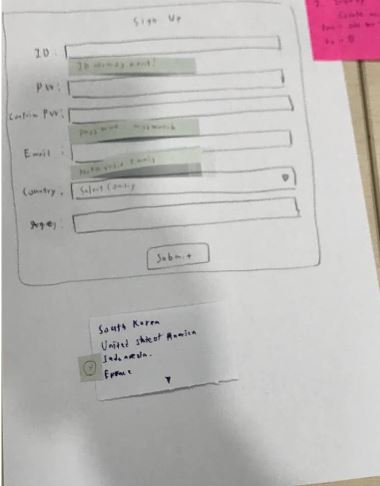 Sign Up
ID :
ID already exist!
PW :
Confirm PW :
Password mismatch
Email :
Not a valid Email
Country :
Select Country
Submit
South Korea
United State of America
Indonesia.